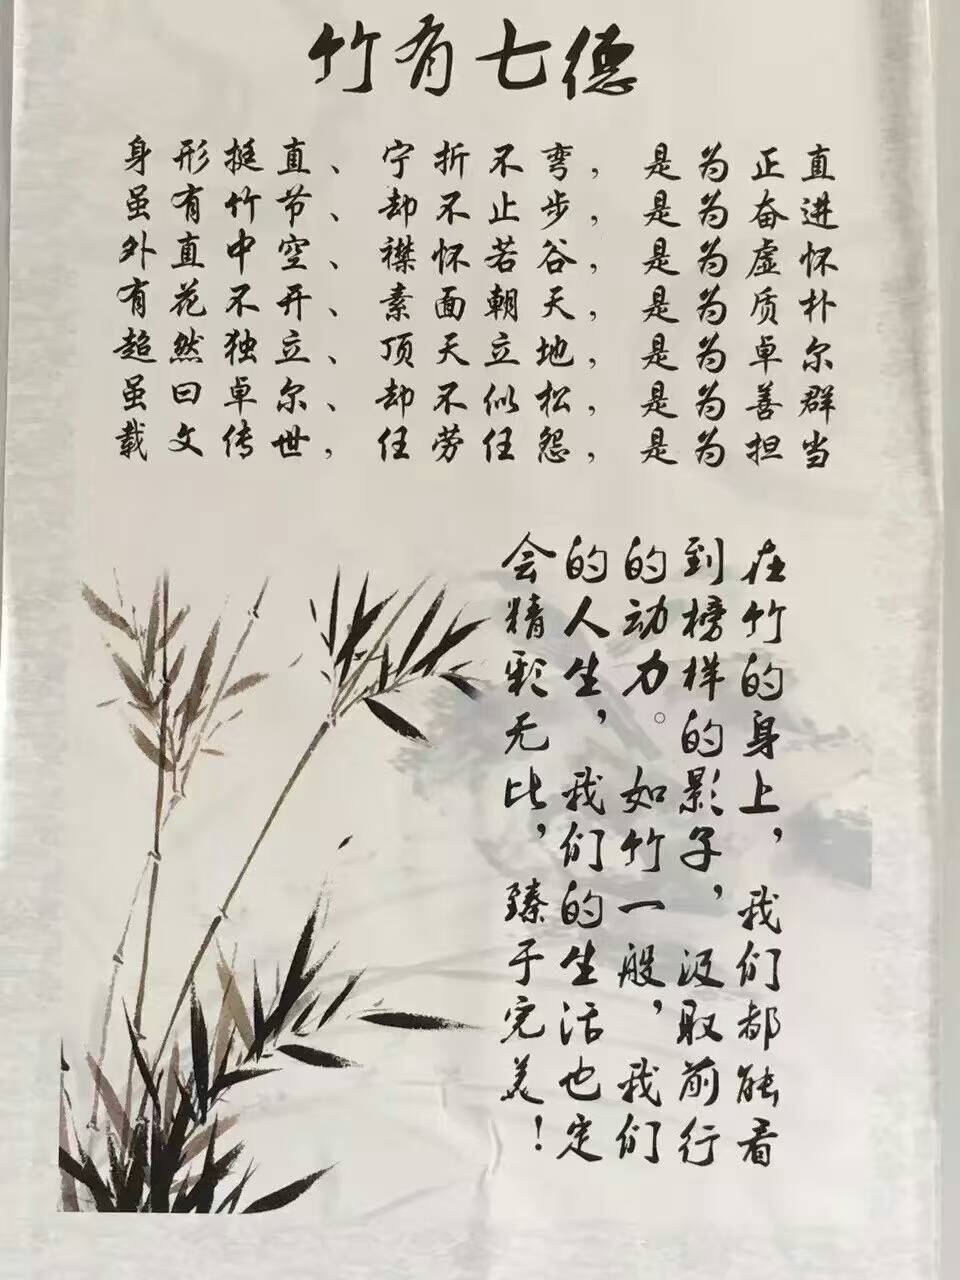 竹有七德
身形挺直、宁折不弯，是为正直
虽有竹节、却不止步，是为奋进
外直中空、襟怀若谷，是为虚怀
有花不开、素面朝天，是为质朴
超然独立、顶天立地，是为卓尔
虽曰卓尔、却不似松，是为善群
载文传世，任劳任怨，是为担当
在竹的身上，我们都能看
到榜样的影子，汲取前行
的动力。如竹一般，我们
的人生，我们的生活也定
会精彩无比，臻于完美！